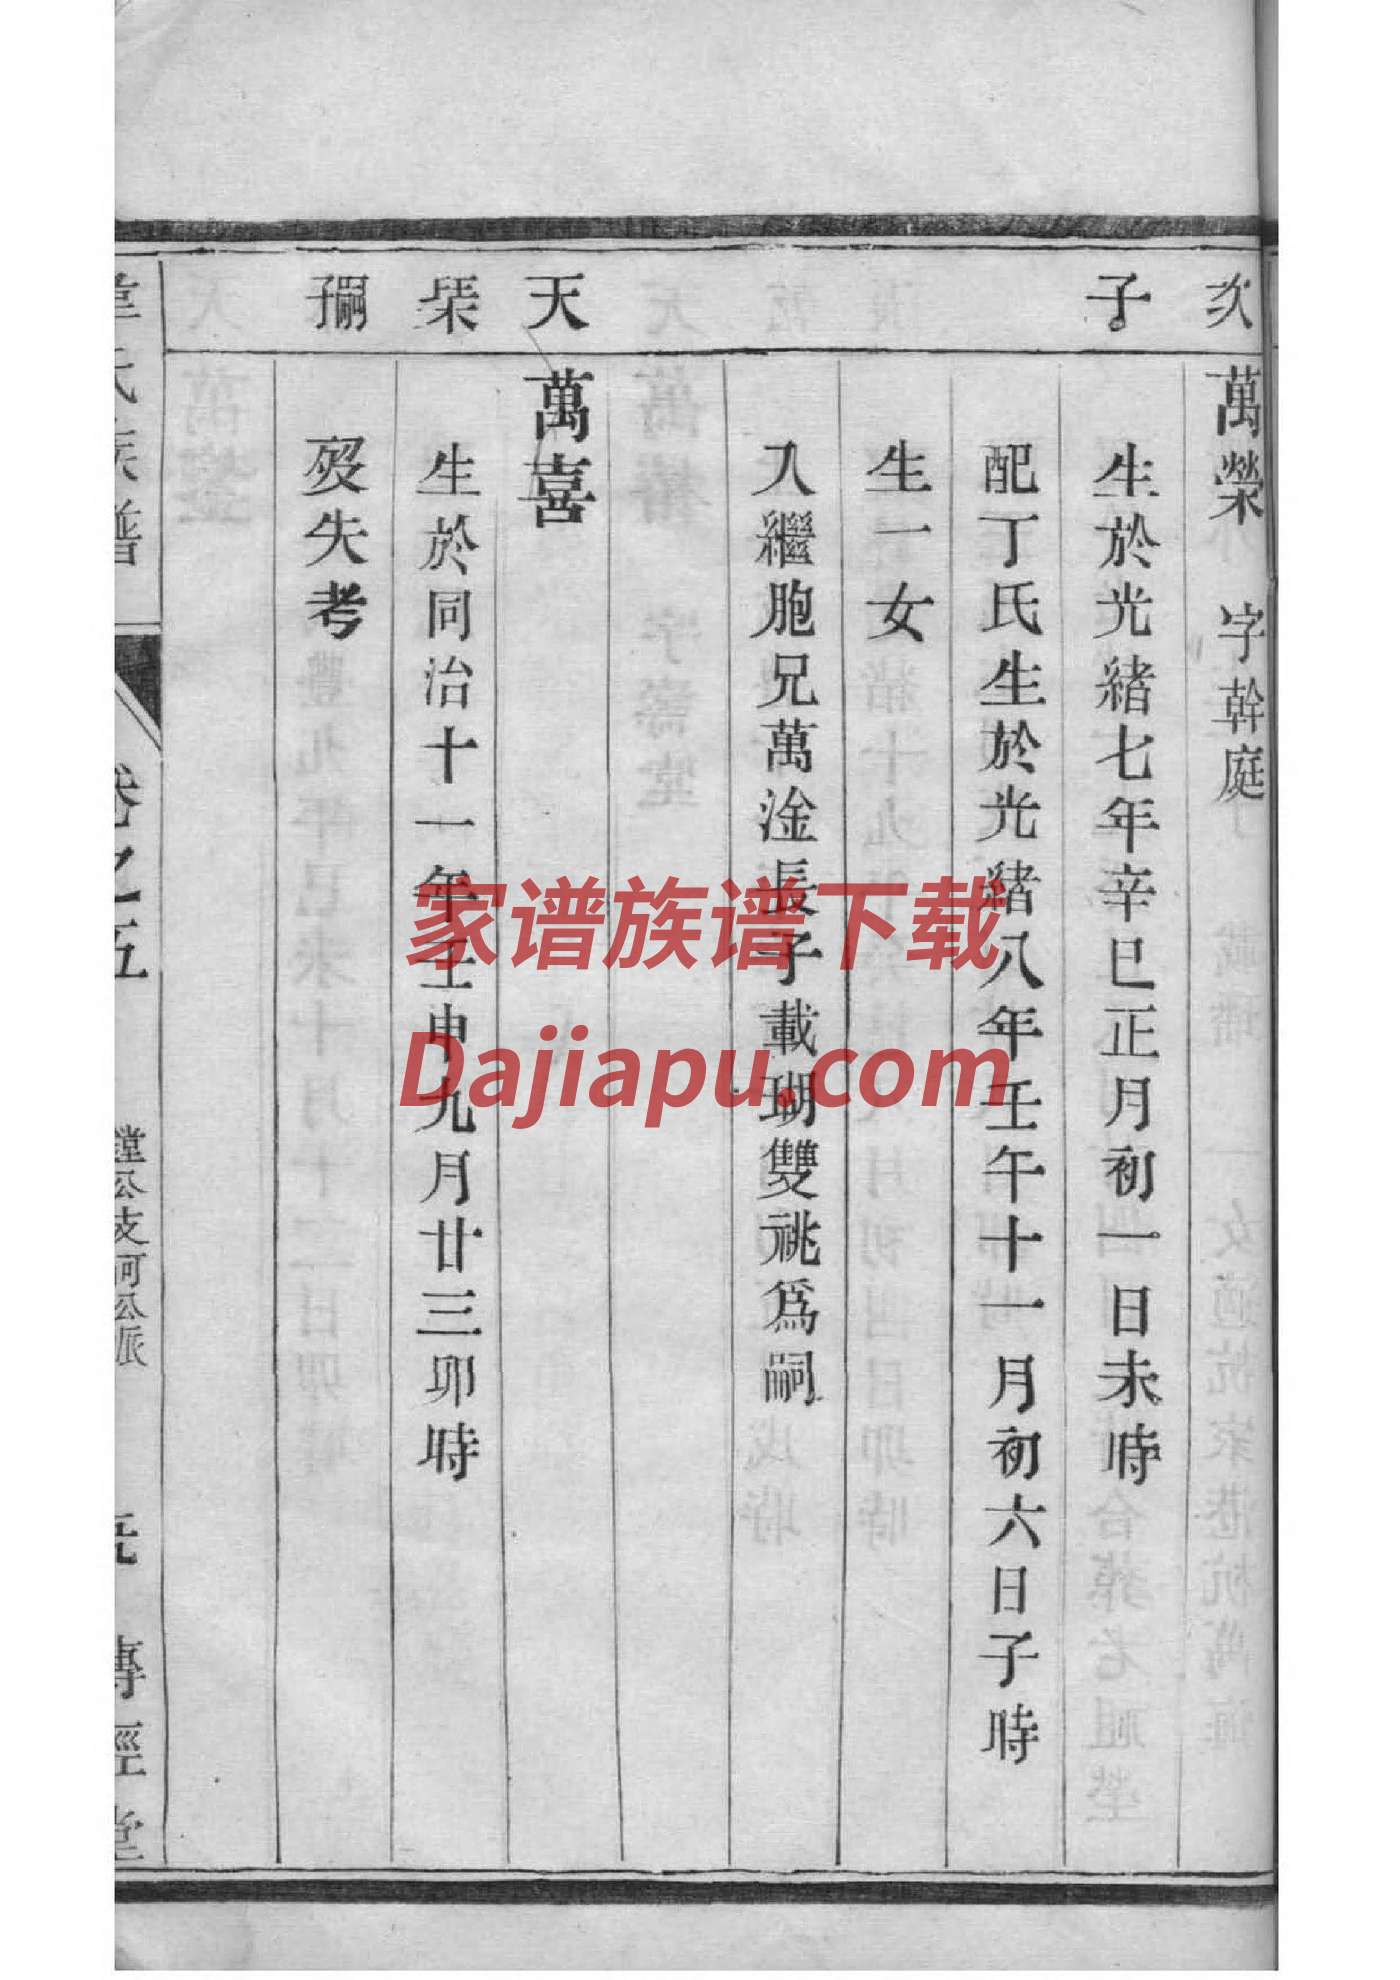 次 萬榮 字幹庭
子 生於光緒七年辛巳正月初一日未時
配丁氏生於光緒八年壬午十一月初六日子時
生一女
入繼胞兄萬淦長子載瑚雙祧爲嗣
天 萬喜
桒 生於同治十一年壬申九月廿三卯時
歿失考
氏族譜 卷之五 鏜公支河公派 傳經堂
家谱族谱下载
Dajiapu.com